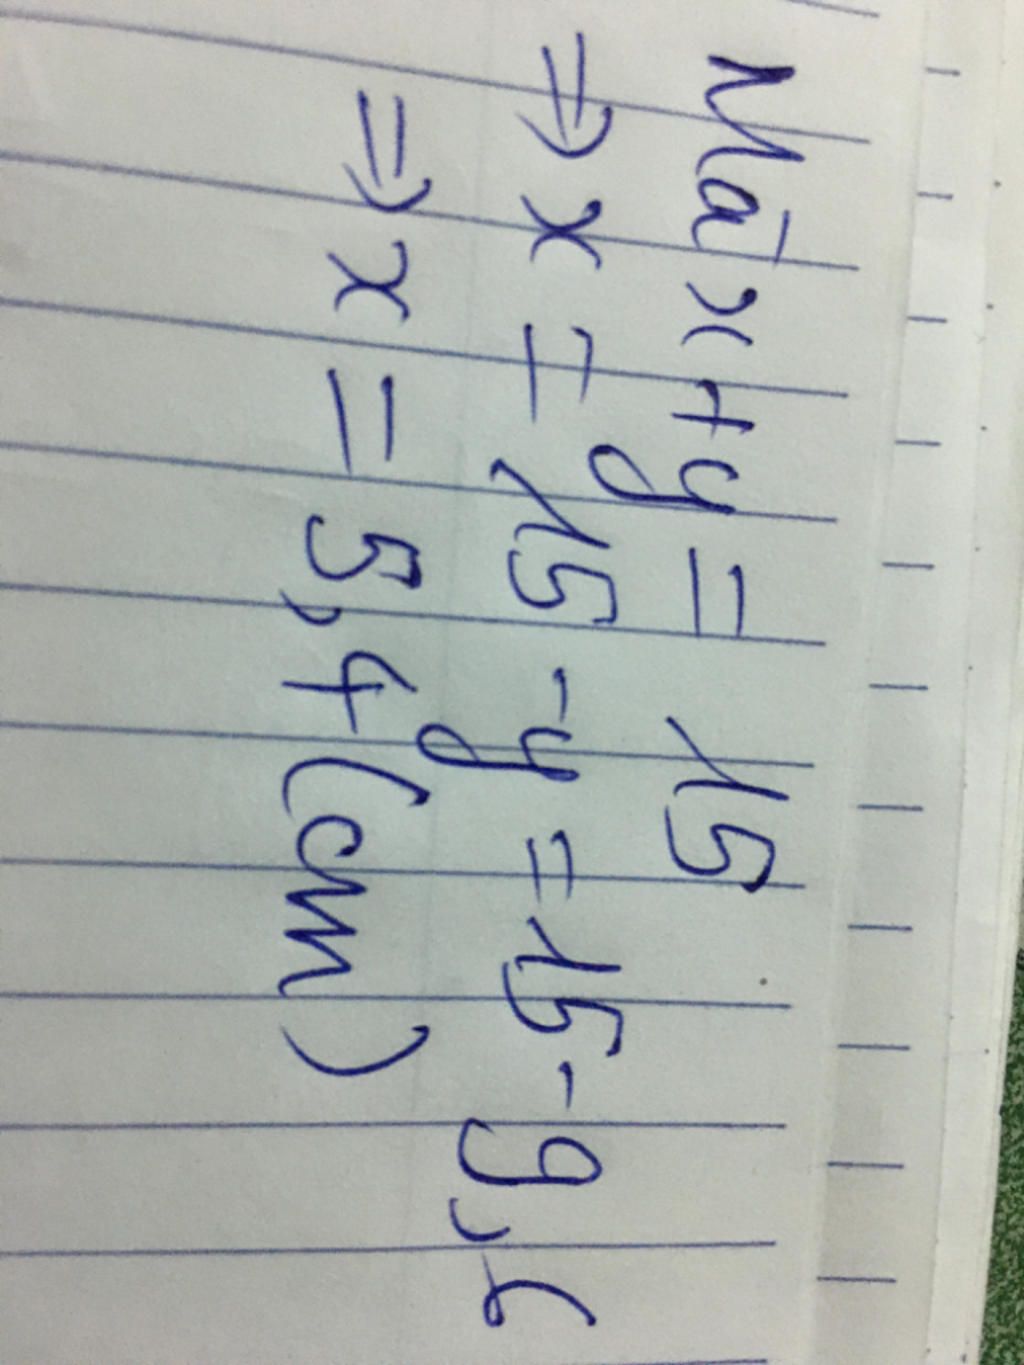 Mà x + y = 15
=> x = 15 - y = 15 - 9,6
=> x = 5,4 (cm)